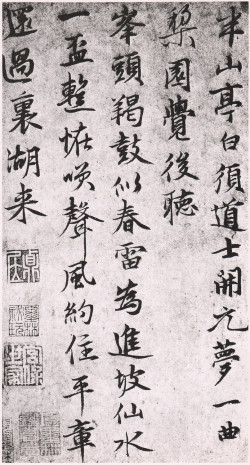 半山亭白須道士開元夢一曲
梨園覺後聽
峯頭羯鼓似春雷為進坡仙水
一盃整咲聲風約住平章
還過裏湖来